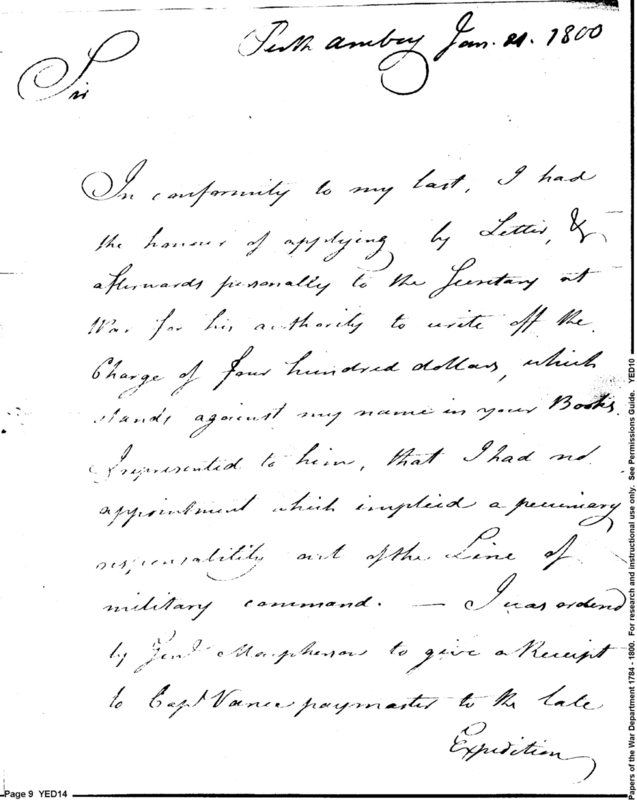 Perth Amboy Jan. 21. 1800
Sir
In conformity to my last, I had
the honour of applying by Letter, &
afterwards personally to the Secretary at
War for his authority to write off the
Charge of four hundred dollars, which
stands against my name in your Books.
I represented to him, that I had no
appointment which implied a pecuniary
responsability out of the Line of
military command. — I was ordered
by Genl. Macpherson to give a Receipt
to Capt. Vance paymaster to the late
Expedition
Page 9 YED14
Papers of the War Department 1784 - 1800. For research and instructional use only. See Permissions Guide. YED10